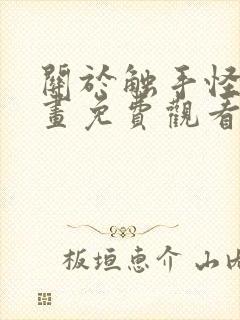 關於触手怪
畫免費觀看
板垣恵介 山内